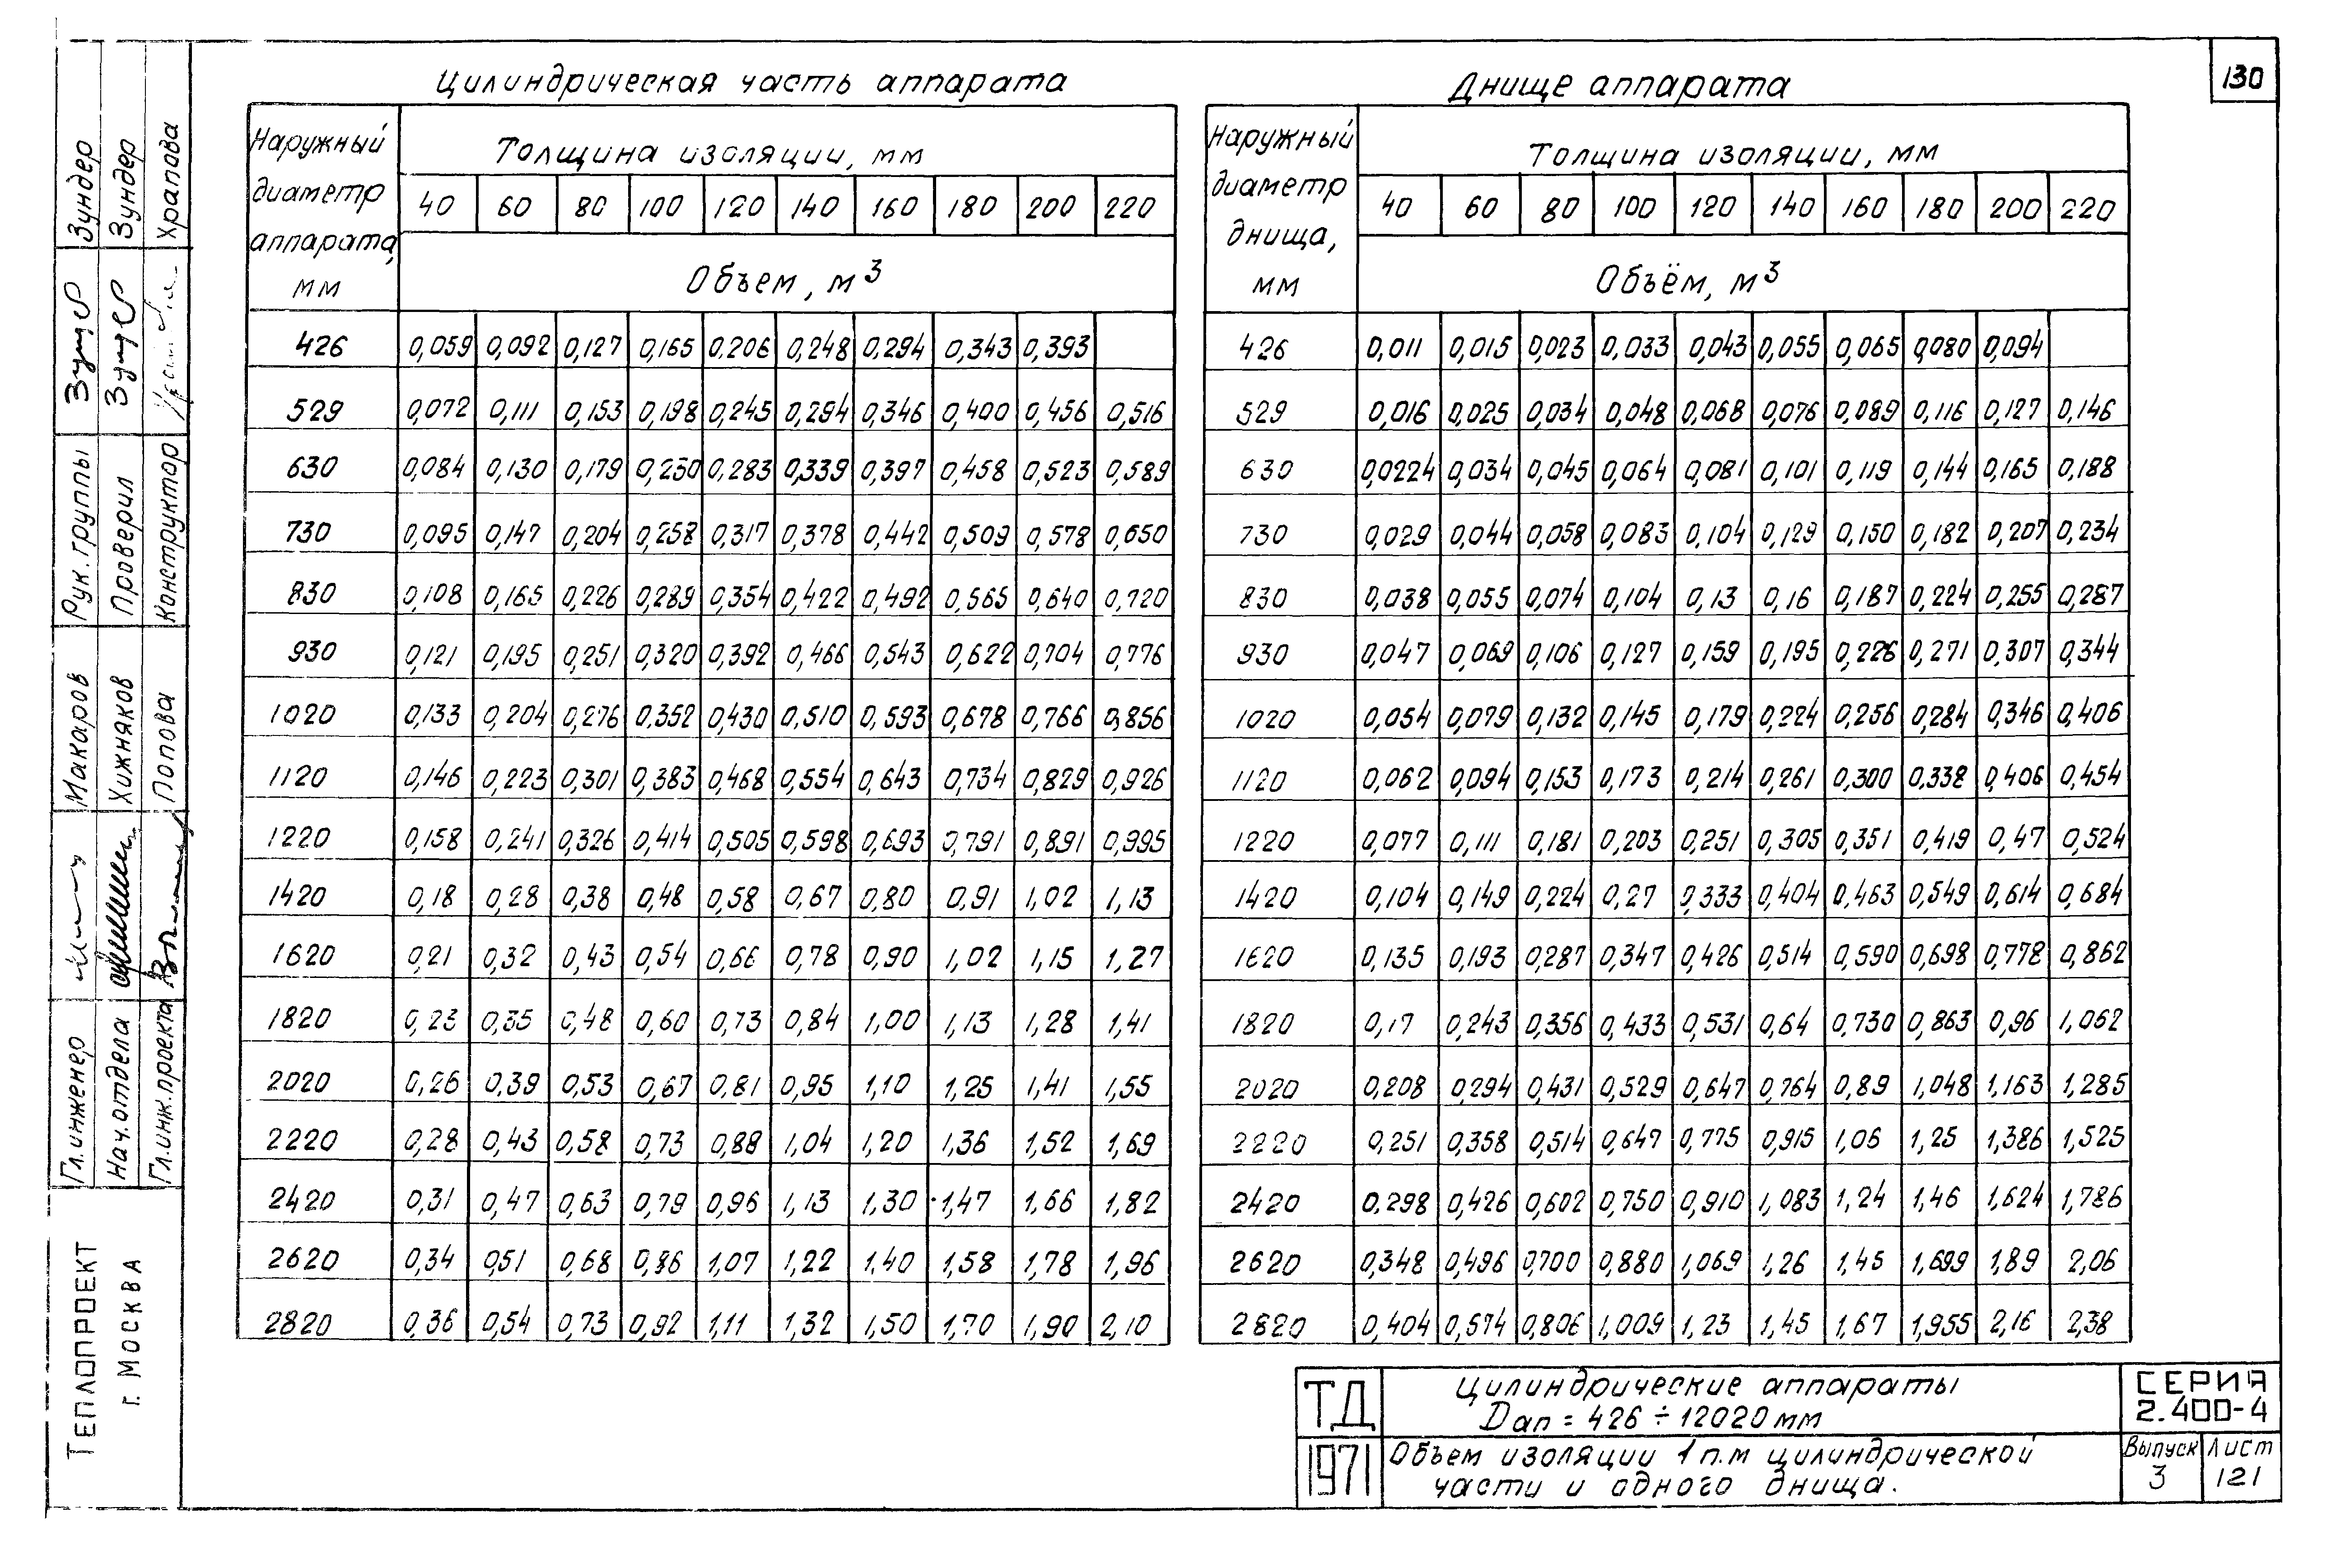 130
Цилиндрическая часть аппарата
Наружный диаметр аппарата, мм
Толщина изоляции, мм
40 60 80 100 120 140 160 180 200 220
Объем, м³
426 0,059 0,092 0,127 0,165 0,206 0,248 0,294 0,343 0,393
529 0,072 0,111 0,153 0,198 0,245 0,294 0,346 0,400 0,456 0,516
630 0,084 0,130 0,179 0,230 0,283 0,339 0,397 0,458 0,523 0,589
730 0,095 0,147 0,204 0,258 0,317 0,378 0,442 0,509 0,578 0,650
830 0,108 0,165 0,226 0,289 0,354 0,422 0,492 0,565 0,640 0,720
930 0,121 0,195 0,251 0,320 0,392 0,466 0,543 0,622 0,704 0,776
1020 0,133 0,204 0,276 0,352 0,430 0,510 0,593 0,678 0,766 0,856
1120 0,146 0,223 0,301 0,383 0,468 0,554 0,643 0,734 0,829 0,926
1220 0,158 0,241 0,326 0,414 0,505 0,598 0,693 0,791 0,891 0,995
1420 0,18 0,28 0,38 0,48 0,58 0,67 0,80 0,91 1,02 1,13
1620 0,21 0,32 0,43 0,54 0,66 0,78 0,90 1,02 1,15 1,27
1820 0,23 0,35 0,48 0,60 0,73 0,84 1,00 1,13 1,28 1,41
2020 0,26 0,39 0,53 0,67 0,81 0,95 1,10 1,25 1,41 1,55
2220 0,28 0,43 0,58 0,73 0,88 1,04 1,20 1,36 1,52 1,69
2420 0,31 0,47 0,63 0,79 0,96 1,13 1,30 1,47 1,66 1,82
2620 0,34 0,51 0,68 0,86 1,07 1,22 1,40 1,58 1,78 1,96
2820 0,36 0,54 0,73 0,92 1,11 1,32 1,50 1,70 1,90 2,10
Днище аппарата
Наружный диаметр днища, мм
Толщина изоляции, мм
40 60 80 100 120 140 160 180 200 220
Объём, м³
426 0,011 0,015 0,023 0,033 0,043 0,055 0,065 0,080 0,094
529 0,016 0,025 0,034 0,048 0,068 0,076 0,089 0,116 0,127 0,146
630 0,0224 0,034 0,045 0,064 0,081 0,101 0,119 0,144 0,165 0,188
730 0,029 0,044 0,058 0,083 0,104 0,129 0,150 0,182 0,207 0,234
830 0,038 0,055 0,074 0,104 0,13 0,16 0,187 0,224 0,255 0,287
930 0,047 0,069 0,106 0,127 0,159 0,195 0,226 0,271 0,307 0,344
1020 0,054 0,079 0,132 0,145 0,179 0,224 0,256 0,284 0,346 0,406
1120 0,062 0,094 0,153 0,173 0,214 0,261 0,300 0,338 0,406 0,454
1220 0,077 0,111 0,181 0,203 0,251 0,305 0,351 0,419 0,47 0,524
1420 0,104 0,149 0,224 0,27 0,333 0,404 0,463 0,549 0,614 0,684
1620 0,135 0,193 0,287 0,347 0,426 0,514 0,590 0,698 0,778 0,862
1820 0,17 0,243 0,356 0,433 0,531 0,64 0,730 0,863 0,96 1,062
2020 0,208 0,294 0,431 0,529 0,647 0,764 0,89 1,048 1,163 1,285
2220 0,251 0,358 0,514 0,647 0,775 0,915 1,06 1,25 1,386 1,525
2420 0.298 0,426 0,602 0,750 0,910 1,083 1,24 1,46 1,624 1,786
2620 0,348 0,496 0,700 0,880 1,069 1,26 1,45 1,699 1,89 2,06
2820 0,404 0,574 0,806 1,009 1,23 1,45 1,67 1,955 2,16 2,38
ТД
1971
Цилиндрические аппараты
Dап = 426 ÷ 12020 мм
Объем изоляции 1 п.м цилиндрической
части и одного днища.
СЕРИЯ
2.400-4
Выпуск 3
Лист 121
Гл.инженер Макаров
Нач.отдела Хижняков
Гл.инж.проекта Попова
Рук. группы Зундер
Проверил Зундер
Конструктор Храпова
ТЕПЛОПРОЕКТ
г. МОСКВА